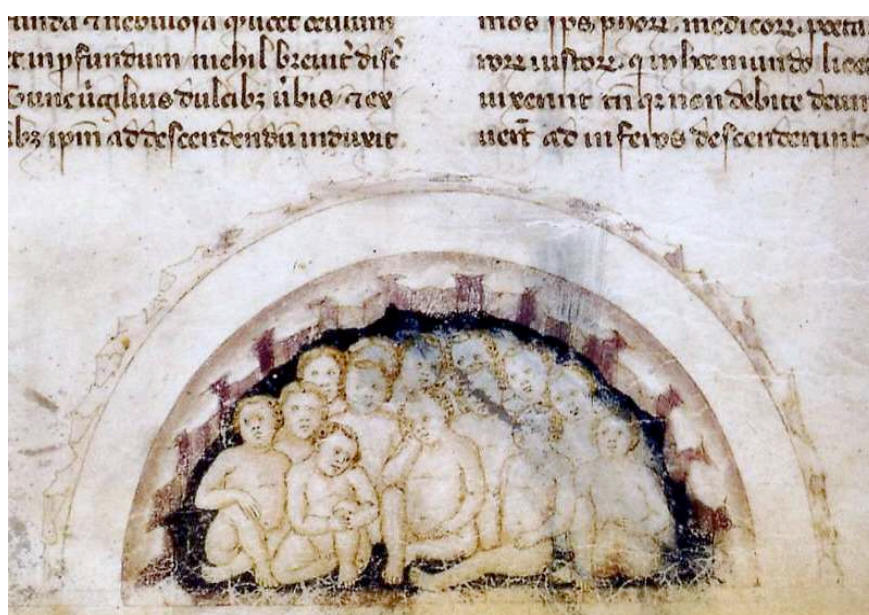 et in profundum nichil breuit disc
Tunc uirgilius dulcibz ubis ⁊ ex
ibz ipm ad descendendu induxit
mos ips phorꝝ, medicorꝝ, poeta
rorꝝ iustorꝝ, q in hoc mundo licet
uixerint tn qr non debite deum
uert ad inferos descenderunt